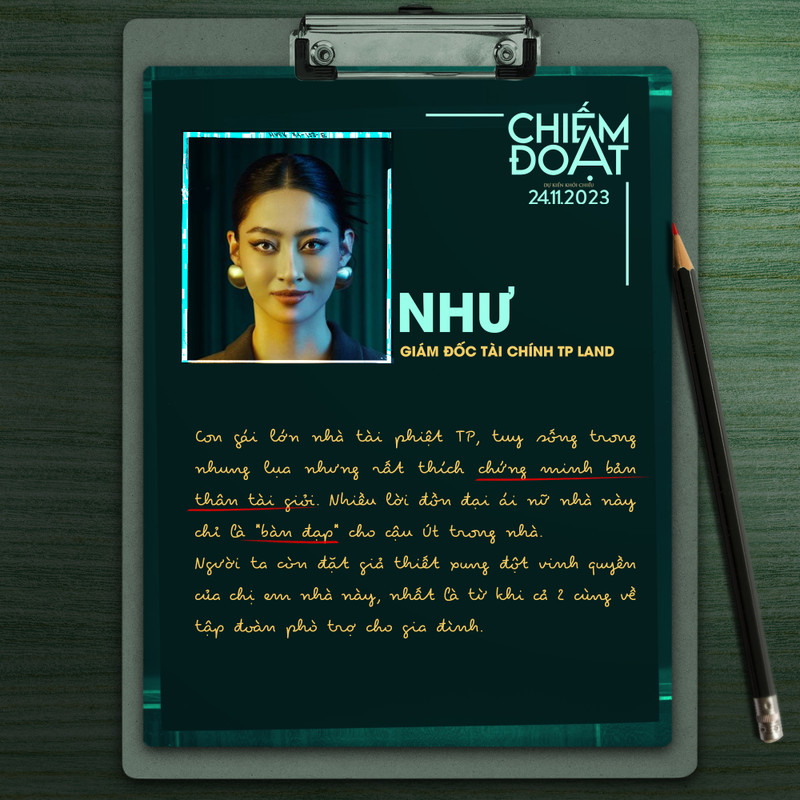 CHIẾM
ĐOẠT
DỰ KIẾN KHỞI CHIẾU
24.11.2023
NHƯ
GIÁM ĐỐC TÀI CHÍNH TP LAND
Con gái lớn nhà tài phiệt TP, tuy sống trong
nhung lụa nhưng rất thích chứng minh bản
thân tài giỏi. Nhiều lời đồn đại ái nữ nhà này
chỉ là "bàn đạp" cho cậu út trong nhà.
Người ta còn đặt giả thiết xung đột vinh quyền
của chị em nhà này, nhất là từ khi cả 2 cùng về
tập đoàn phò trợ cho gia đình.